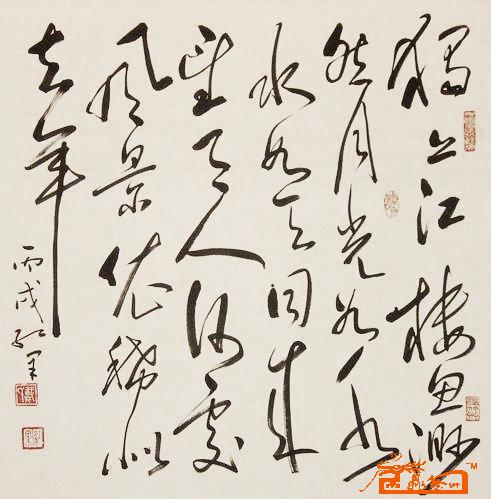 獨上江樓思渺
然月光如水
水如天同來
望月人何處
風景依稀似
去年
丙戌